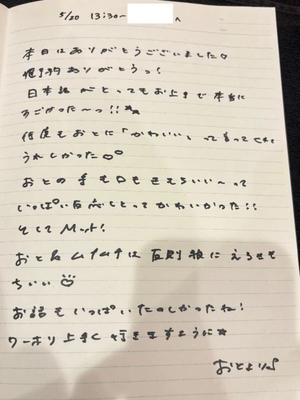 5/20 13:30~ へ
本日はありがとうございました♡
ありがとうっ!
日本語がとってもお上手で本当に
すごかった〜っ!!★
何度もおとに「かわいい」って言ってくれて
うれしかった♡
おとの手も口もきもちいい〜って
いっぱい反応しとってかわいかった!!
そしてMっト!
おと ムチムチは反則級に えろすぎ
ちいい
お話もいっぱいたのしかったね!
ワーホリ上手く行きますように★
おとより♪